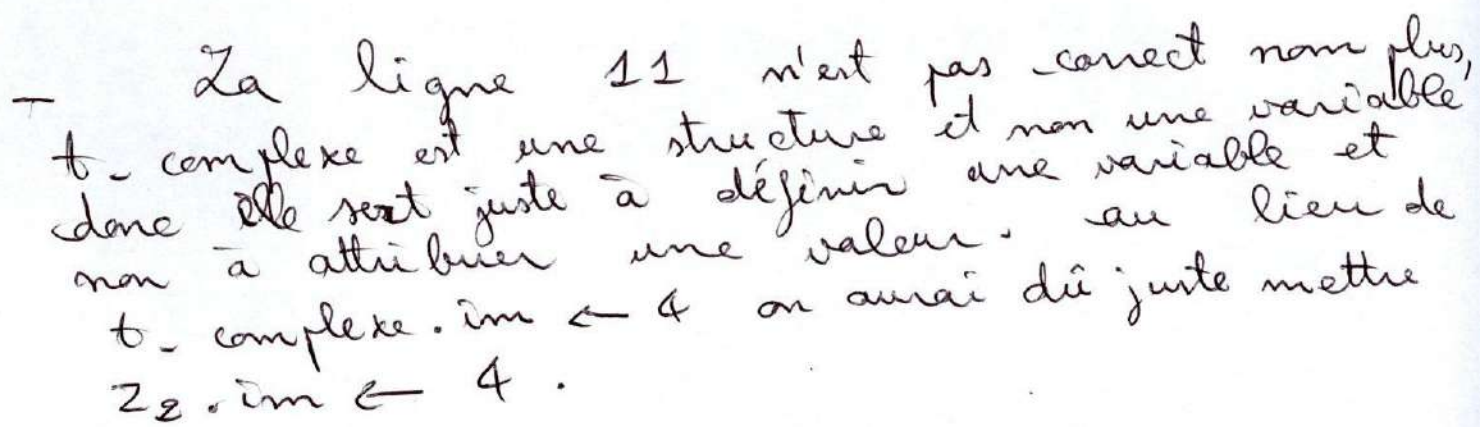 - La ligne 11 n'est pas correct non plus,
t_complexe est une structure et non une variable
donc elle sert juste à définir une variable et
non à attribuer une valeur. au lieu de
t_complexe.im ← 4 on aurai dû juste mettre
z2.im ← 4.